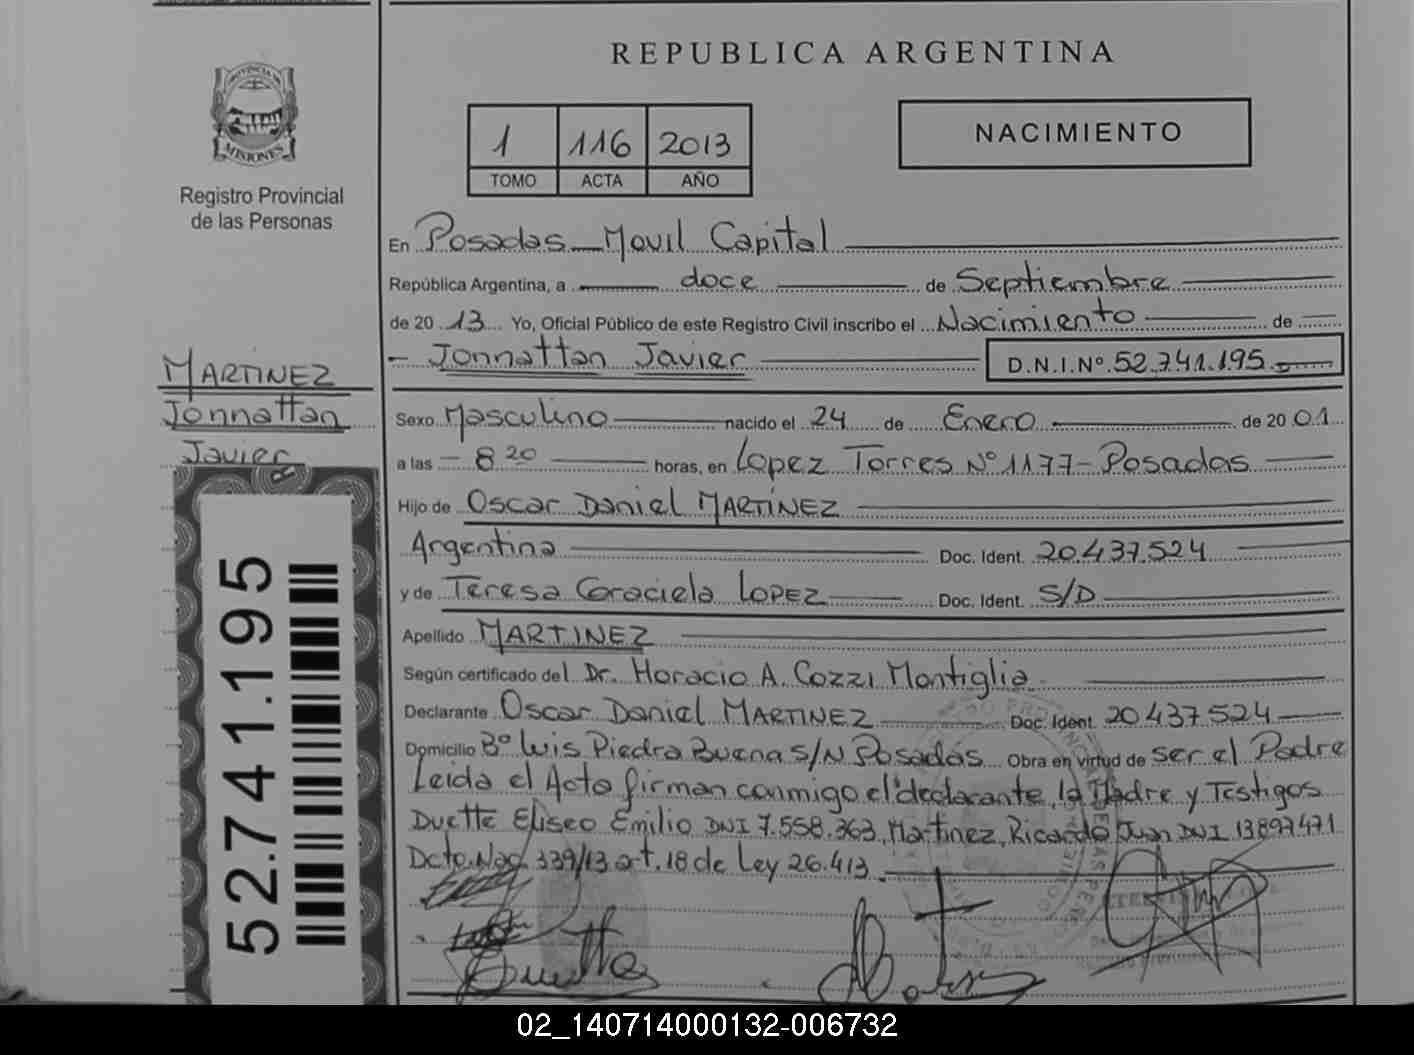 REPUBLICA ARGENTINA
PROVINCIA DE
MISIONES
Registro Provincial
de las Personas
1 116 2013
TOMO ACTA AÑO
NACIMIENTO
En Posadas Movil Capital
República Argentina, a doce de Septiembre
de 2013 Yo, Oficial Público de este Registro Civil inscribo el Nacimiento de
Jonnattan Javier D.N.I.Nº 52.741.195
MARTINEZ
Jonnattan
Javier
Sexo Masculino nacido el 24 de Enero de 2001
a las 8 20 horas, en Lopez Torres Nº 1177-Posadas
Hijo de Oscar Daniel MARTÍNEZ
Argentina Doc. Ident. 20.437.524
y de Teresa Graciela LOPEZ Doc. Ident. S/D
Apellido MARTINEZ
Según certificado del Dr. Horacio A. Cozzi Montiglia
Declarante Oscar Daniel MARTINEZ Doc. Ident. 20437.524
Domicilio Bº Luis Piedra Buena S/N Posadas Obra en virtud de ser el Padre
Leida el Acta firman conmigo el declarante, la Madre y Testigos
Duette Eliseo Emilio DNI 7.558.363, Martinez, Ricardo Juan DNI 13897471
Dcto. Nac. 339/13 art. 18 de Ley 26.413
52.741.195
02_140714000132-006732